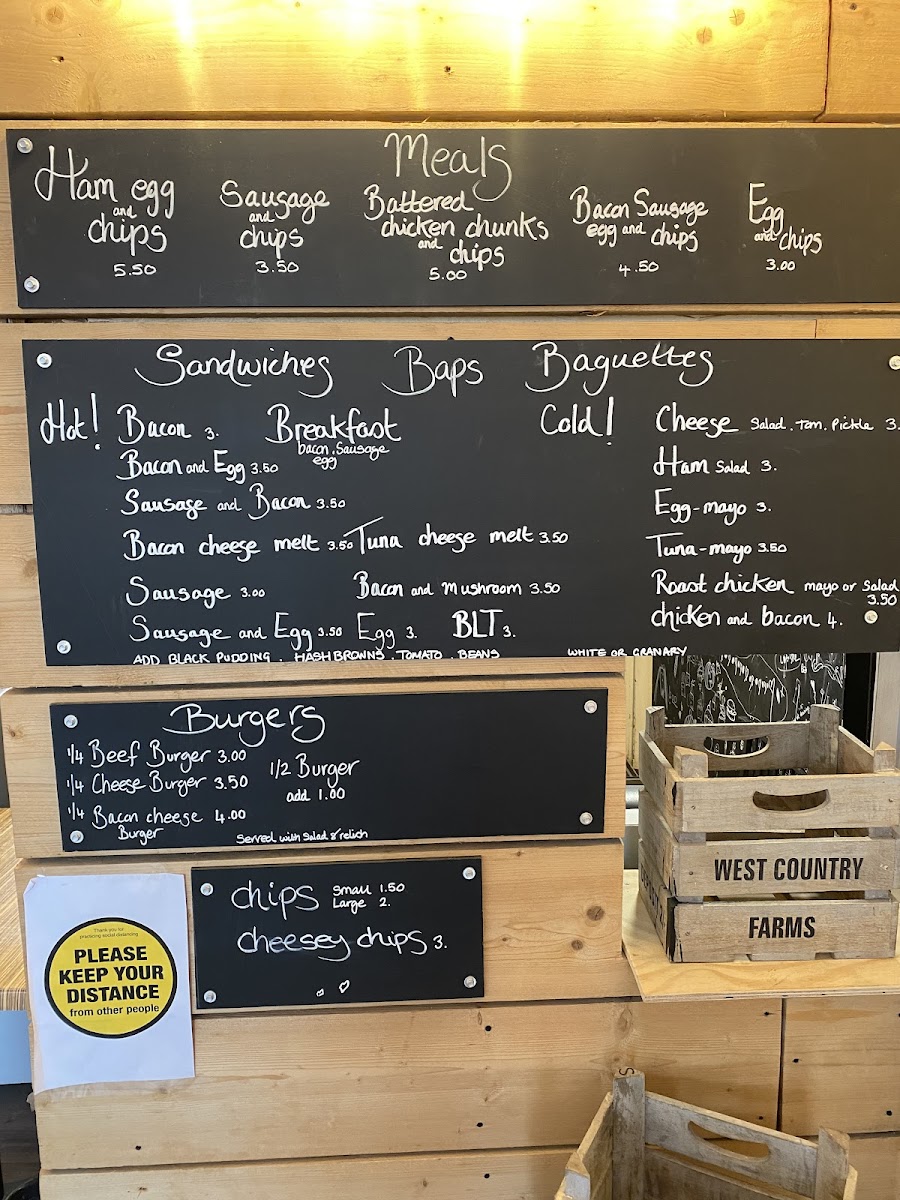 Meals
Ham egg
and
chips
5.50
Sausage
and
chips
3.50
Battered
chicken chunks
and chips
5.00
Bacon Sausage
egg and chips
4.50
Egg
and chips
3.00
Sandwiches Baps Baguettes
Hot!
Bacon 3.
Breakfast
bacon, Sausage
egg
Bacon and Egg 3.50
Sausage and Bacon 3.50
Bacon cheese melt 3.50 Tuna cheese melt 3.50
Sausage 3.00 Bacon and Mushroom 3.50
Sausage and Egg 3.50 Egg 3. BLT 3.
ADD BLACK PUDDING, HASHBROWNS, TOMATO, BEANS
WHITE OR GRANARY
Cold!
Cheese Salad, Tom, Pickle 3.
Ham Salad 3.
Egg-mayo 3.
Tuna-mayo 3.50
Roast chicken mayo or Salad
3.50
chicken and bacon 4.
Burgers
1/4 Beef Burger 3.00
1/4 Cheese Burger 3.50
1/4 Bacon cheese 4.00
Burger
1/2 Burger
add 1.00
Served with Salad & relish
chips Small 1.50
Large 2.
cheesey chips 3.
WEST COUNTRY
FARMS
Thank you for
practicing social distancing
PLEASE
KEEP YOUR
DISTANCE
from other people